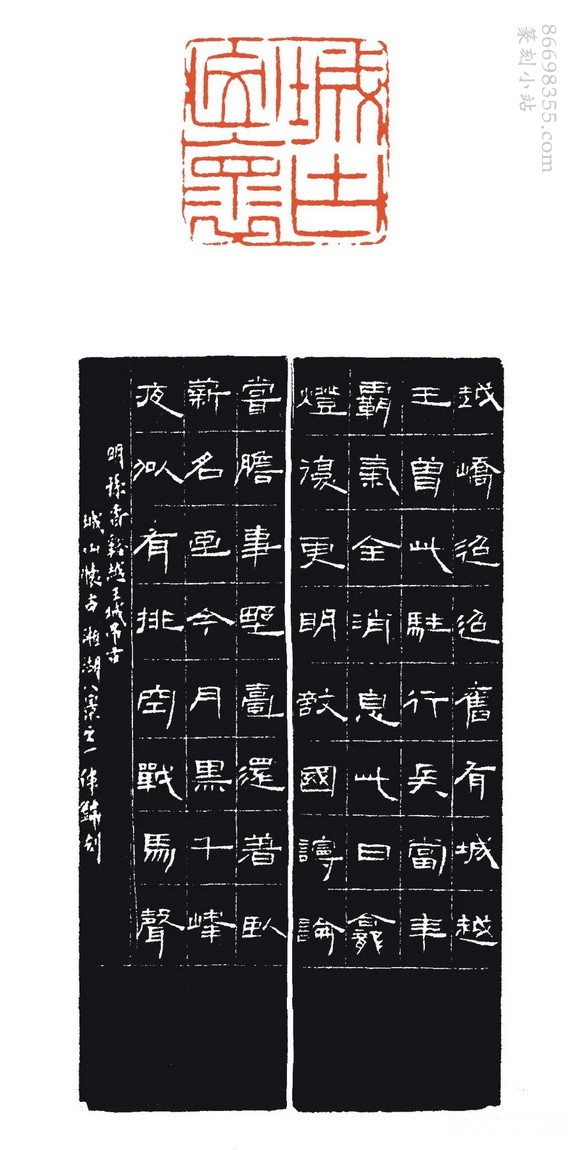 86698355.com
篆刻小站
越嶠迢迢舊有城越
王曾此駐行兵當年
霸氣全消息此日龕
燈復更明敵國謾論
嘗膽事臺還著臥
薪名至今月黑千峰
夜似有排空戰馬聲
明孫越王城吊古
城山懷古湘湖八景之一刻